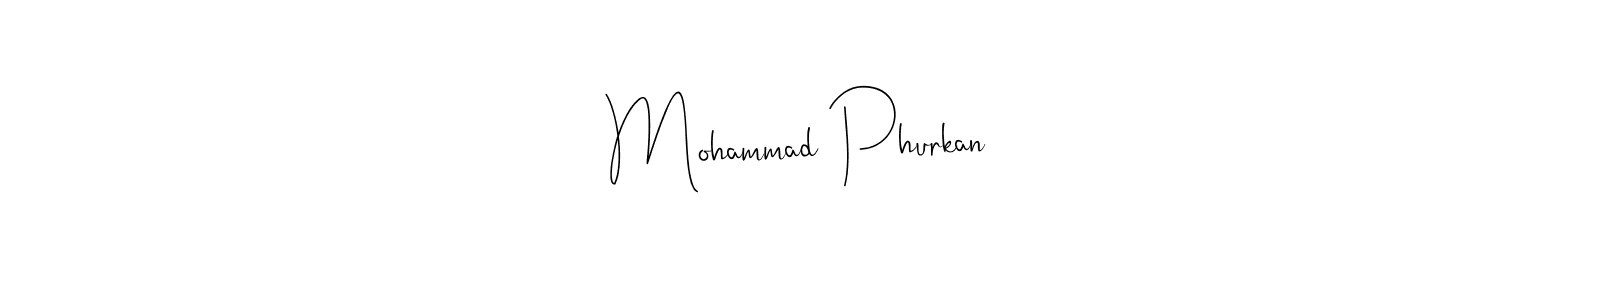 Mohammad Phurkan